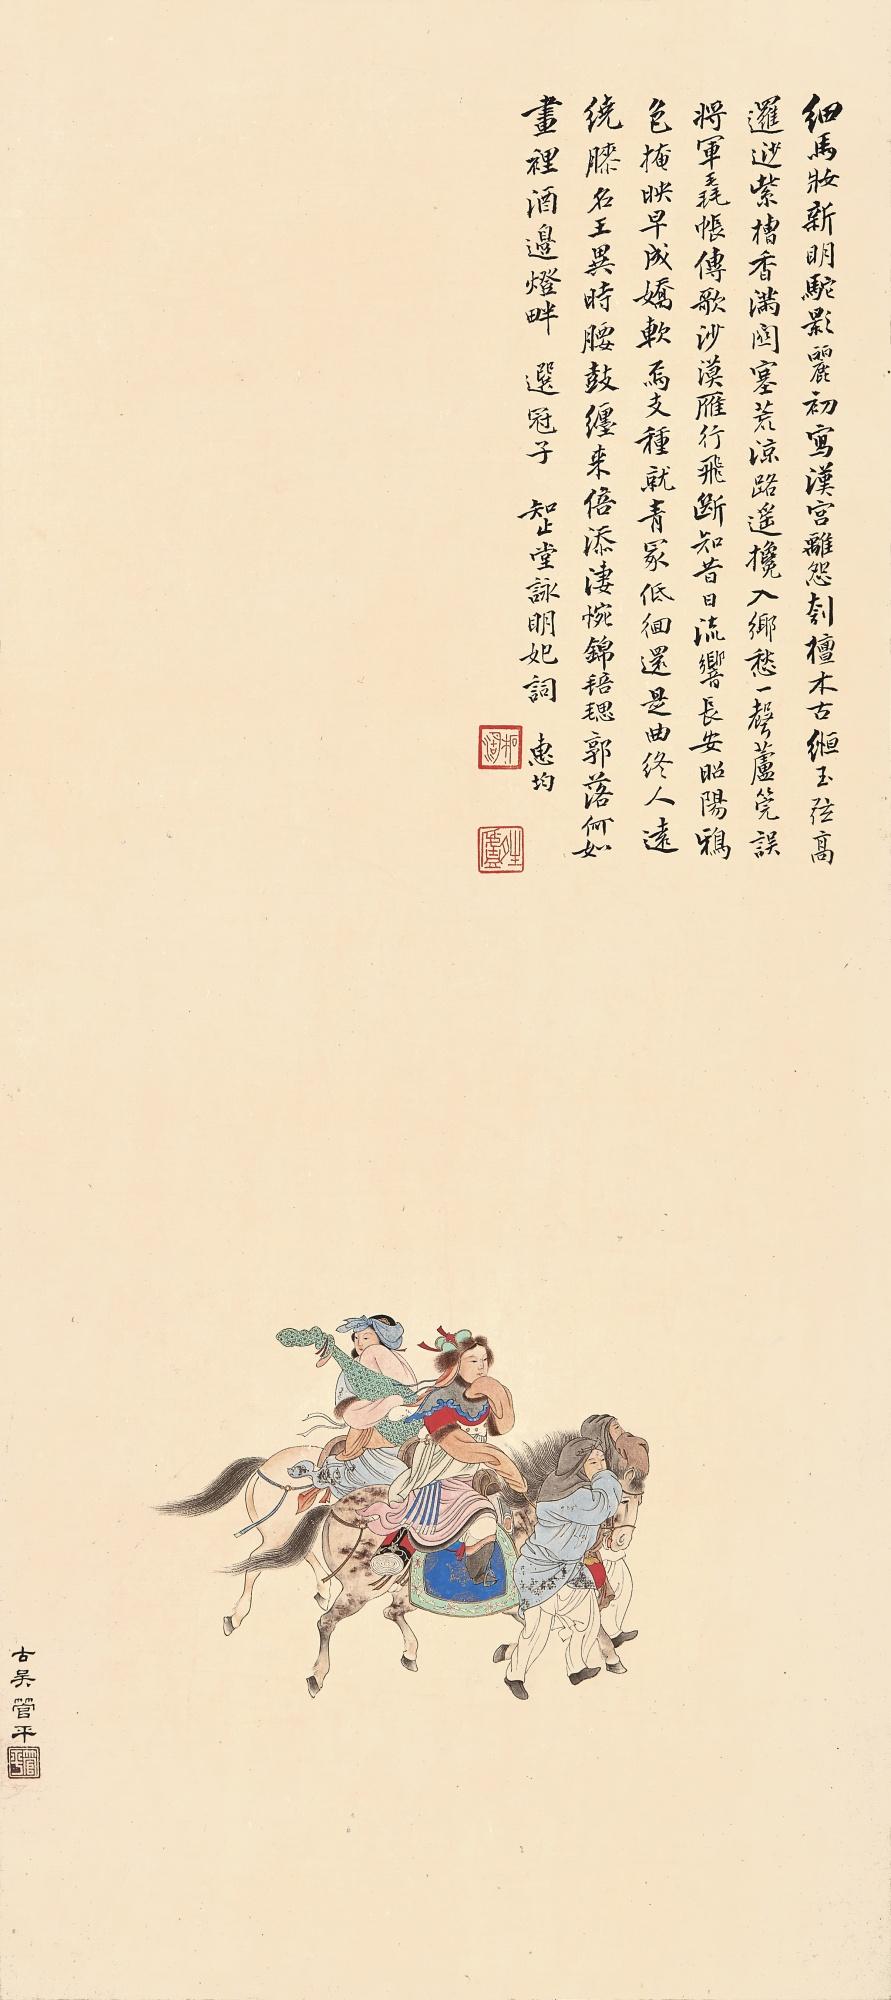 細馬妝新明駝影麗初寫漢宮離怨刳檀木古縆玉弦高
邏逤紫槽香滿關塞荒涼路遙攙入鄉愁一聲蘆筦誤
將軍毳帳傳歌沙漠雁行飛斷知昔日流響長安昭陽鴉
色掩映早成嬌軟焉支種就青冢低徊還是曲終人遠
繞膝名王異時腰鼓纏來倍添淒惋錦琵琶郭落何如
畫裡酒邊燈畔 選冠子 知止堂詠明妃詞 惠均
古吳管平